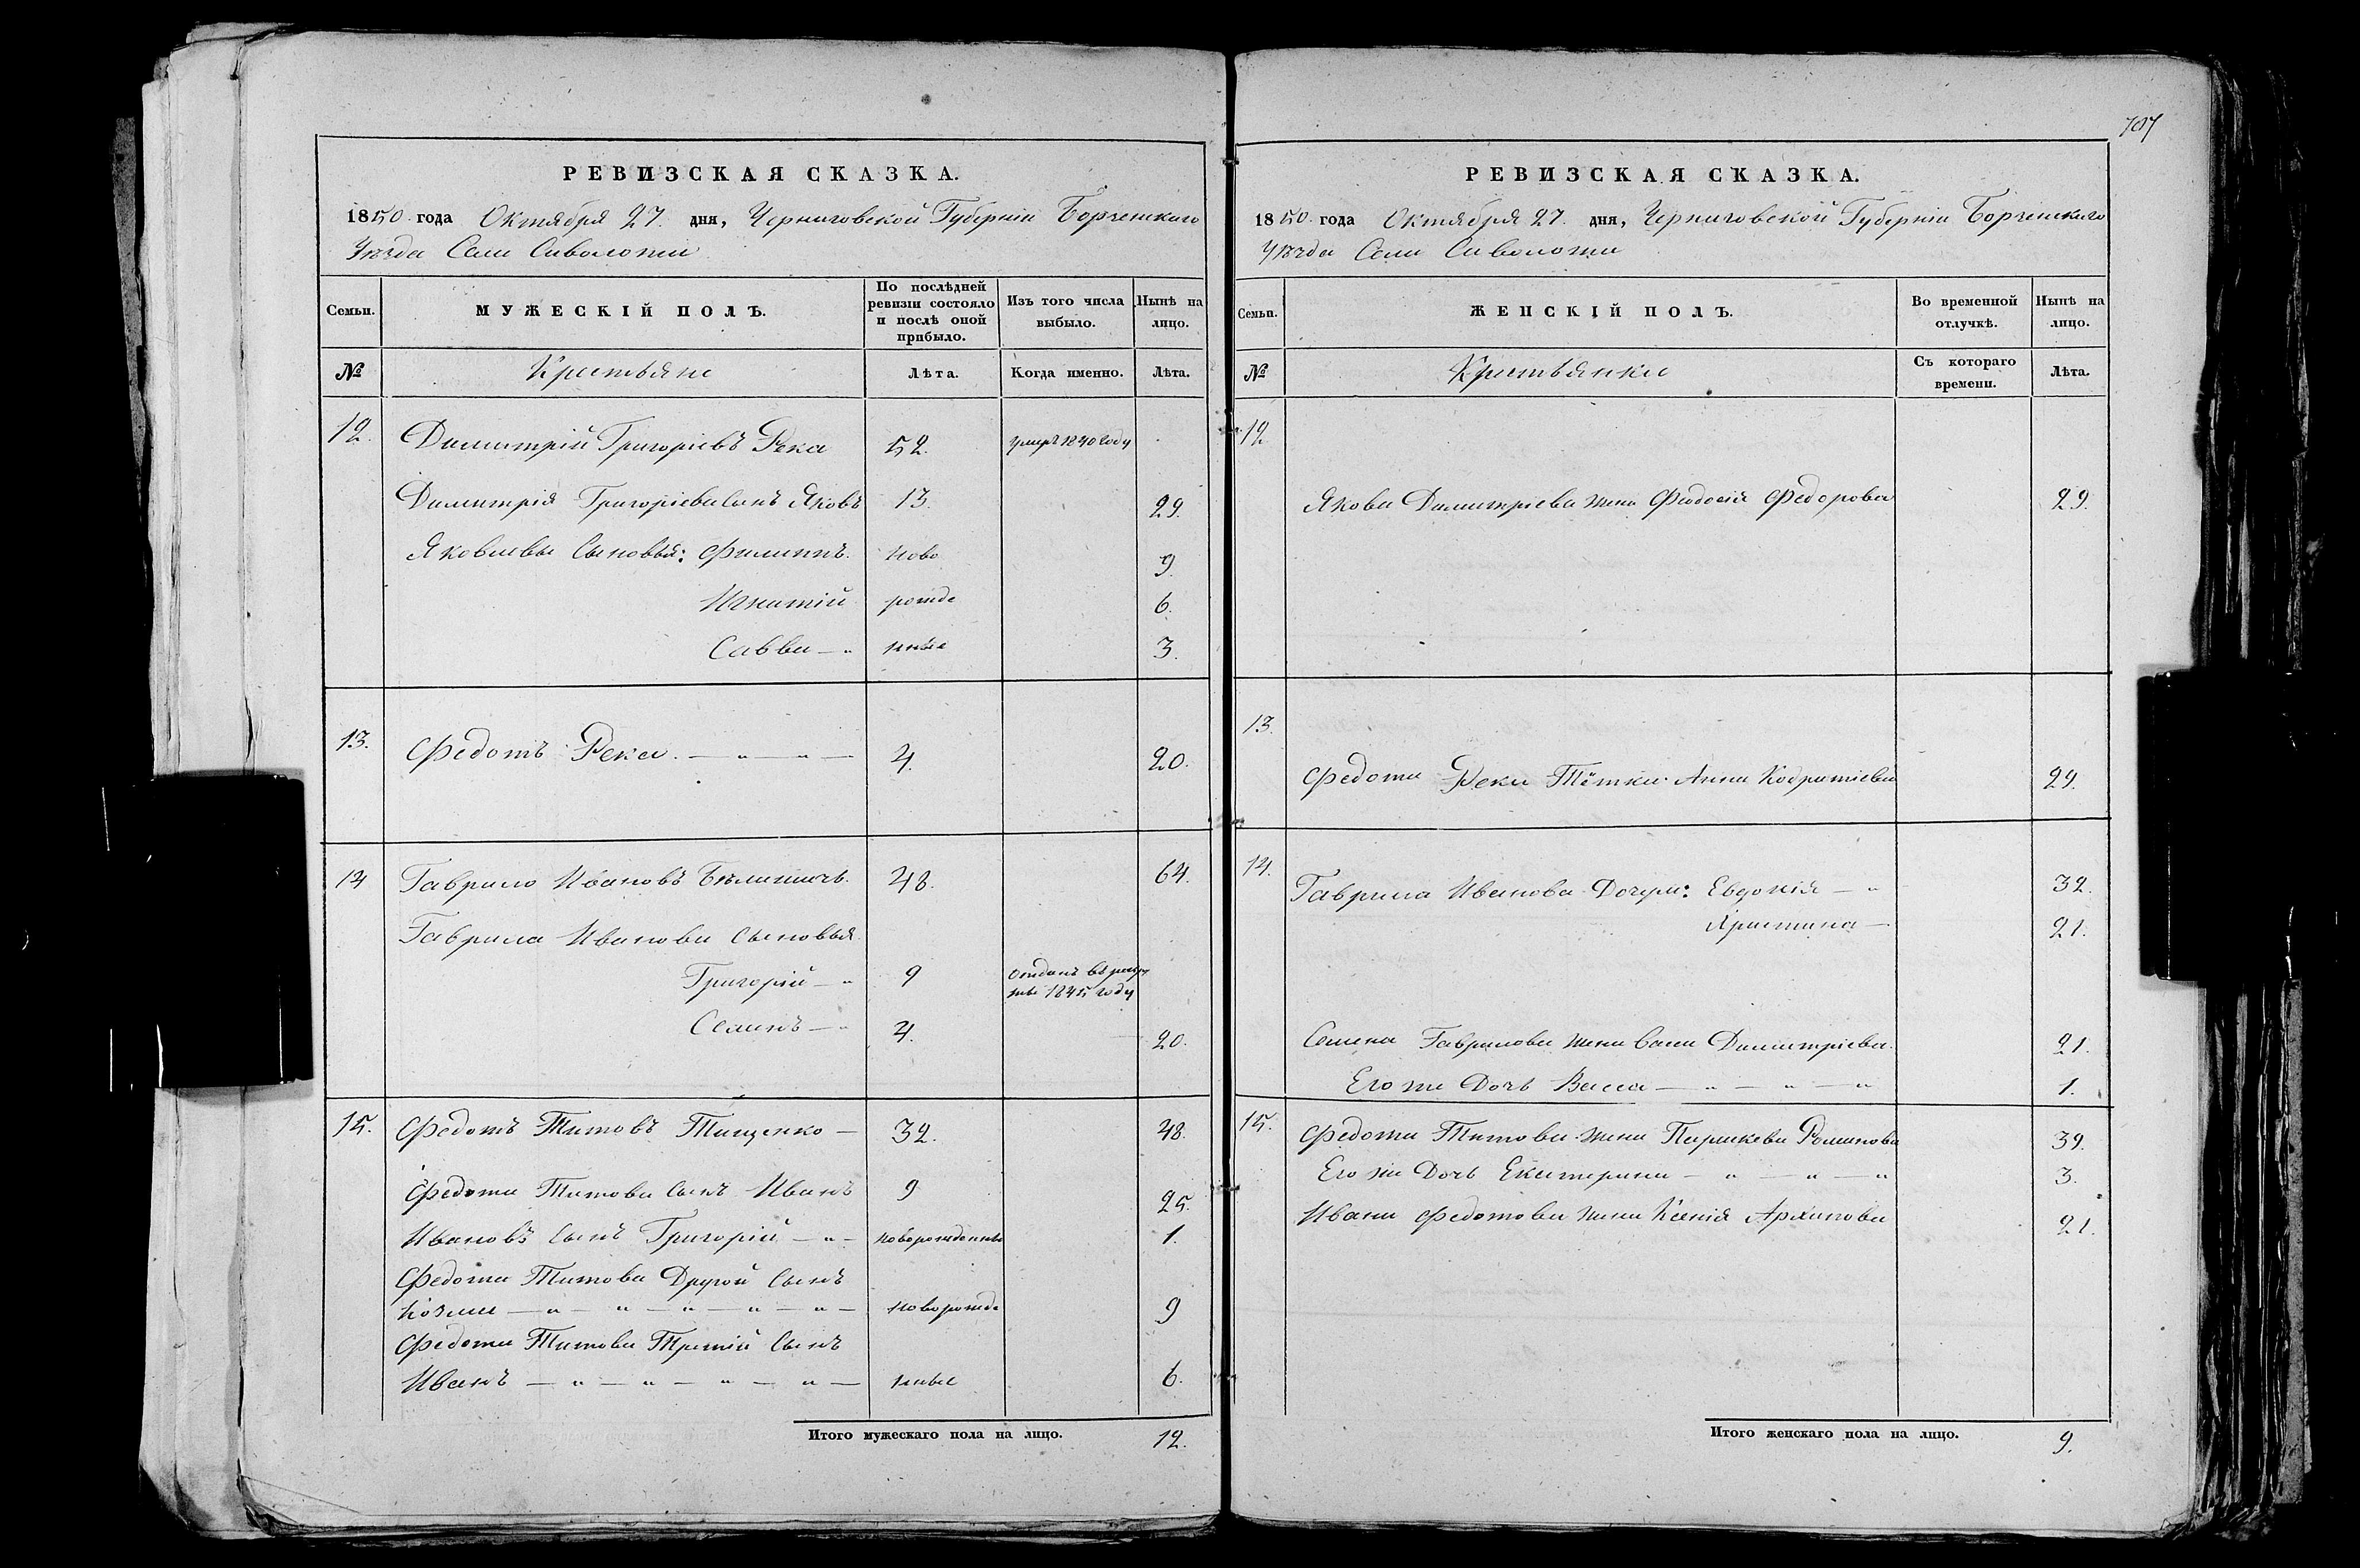 РЕВИЗСКАЯ СКАЗКА.
1850 года Октября 27 дня, Черниговской Губерніи Борзенскаго
Уѣзда Села Сиволожи
Семьи. МУЖЕСКІЙ ПОЛЪ. По послѣдней ревизіи состояло и послѣ оной прибыло. Изъ того числа выбыло. Нынѣ на лицо.
№ Крестьяне Лѣта. Когда именно. Лѣта.
12. Димитрій Григоріевъ Река 52. умеръ 1840 году
Димитрія Григоріева сынъ Яковъ 13. 29.
Яковлевы сыновья: Филиппъ. ново 9.
Игнатій рожде 6.
Савва — „ нные 3.
13. Федотъ Река. — „ — „ — 4. 20.
14 Гаврило Ивановъ Бѣлишичъ. 48. 64.
Гаврила Иванова сыновья
Григорій — „ 9 Отданъ въ рекру
ты 1845 году
Семенъ — „ 4. 20.
15. Федотъ Титовъ Тищенко — 32. 48.
Федота Титова сынъ Иванъ 9 25.
Ивановъ сынъ Григорій — „ — новорожденны 1.
Федота Титова Другой сынъ
Козьма — „ — „ — „ — „ — „ — новорожде 9
Федота Титова Третій сынъ
Иванъ — „ — „ — „ — „ — нные 6.
Итого мужескаго пола на лицо. 12.
707
РЕВИЗСКАЯ СКАЗКА.
1850 года Октября 27 дня, Черниговской Губерніи Борзенскаго
Уѣзда Села Сиволожи
Семьи. ЖЕНСКІЙ ПОЛЪ. Во временной отлучкѣ. Нынѣ на лицо.
№ Крестьянки Съ котораго времени. Лѣта.
12
Якова Димитріева жена Феодосія Федорова 29.
13.
Федота Реки Тётка Анна Кодратіева 29.
14.
Гаврила Иванова Дочери: Евдокія — „ 32.
Христина — 21.
Семена Гаврилова жена Васса Димитріева. 21.
Его же Дочь Васса — „ — „ — „ 1.
15. Федота Титова жена Параскева Романова 39.
Его же Дочь Екатерина — „ — „ — „ 3.
Ивана Федотова жена Ксенія Архипова 21.
Итого женскаго пола на лицо. 9.